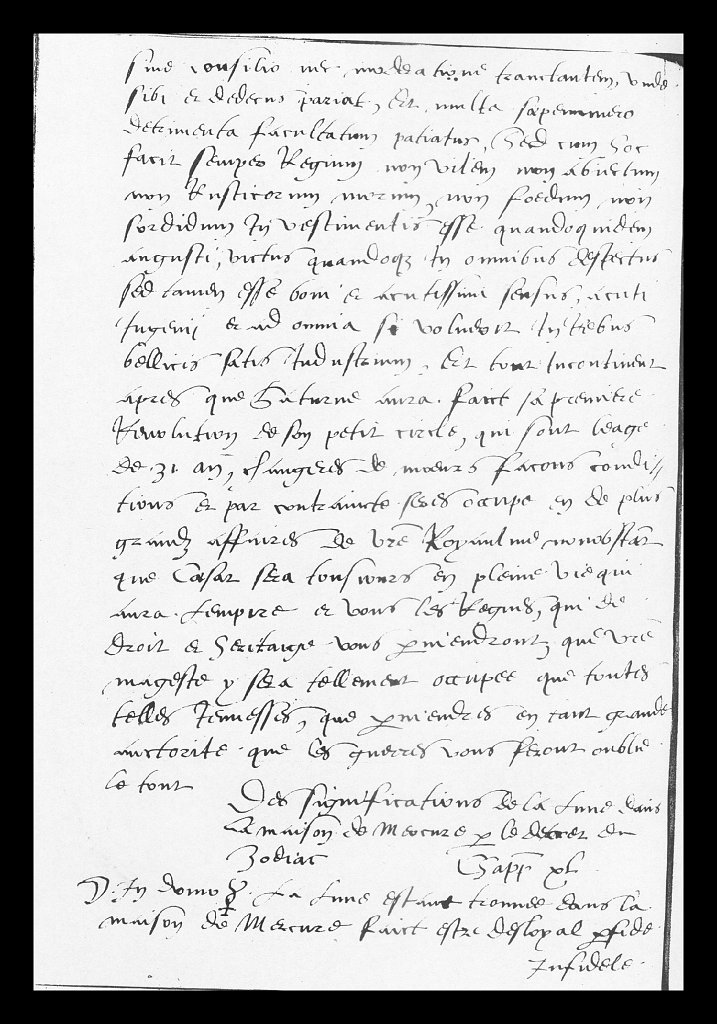 sine consilio nec moderatione tractantem, unde
sibi et dedecus pariat, Et multa sapenumero
detrimenta facultatum patiatur, Sed cum hoc
facit semper Regium non vilem non abiectum
non Rusticorum morum, non foedum, non
sordidum In vestimentis esse quandoquidem
angusti, victus quandoq3 In omnibus despectus
sed tamen esse boni et acutissimi sensus, acuti
Ingenij et ad omnia si voluerit In rebus
bellicis satis Industrium, Et tout Incontinent
apres que Saturne aura faict sa premiere
Revolution de son petit circle, qui sont leage
de 31 an, changeres de mœurs facons condi//
tions et par contraincte seres occupe en de plus
grandz affaires de vr̃e Royaulme nonobstãt
que Cæsar sera tousiours en pleine vie qui
aura Lempire et vous les Regnes, qui de
droit et heritaige vous ꝑuiendront, que vr̃e
mageste y sera tellement occupee que toutes
telles Jeunesses, que ꝑuiendres en tant grande
auctorite que les guerres vous feront oublie
le tout
Des significations de la Lune dans
La maison de Mercure ꝑ le decret du
Zodiac Chapp̃ XL
☽. In domo ☿. La Lune estant trouuee dans la
maison de Mercure faict estre desloyal ꝑfide
Infidele.